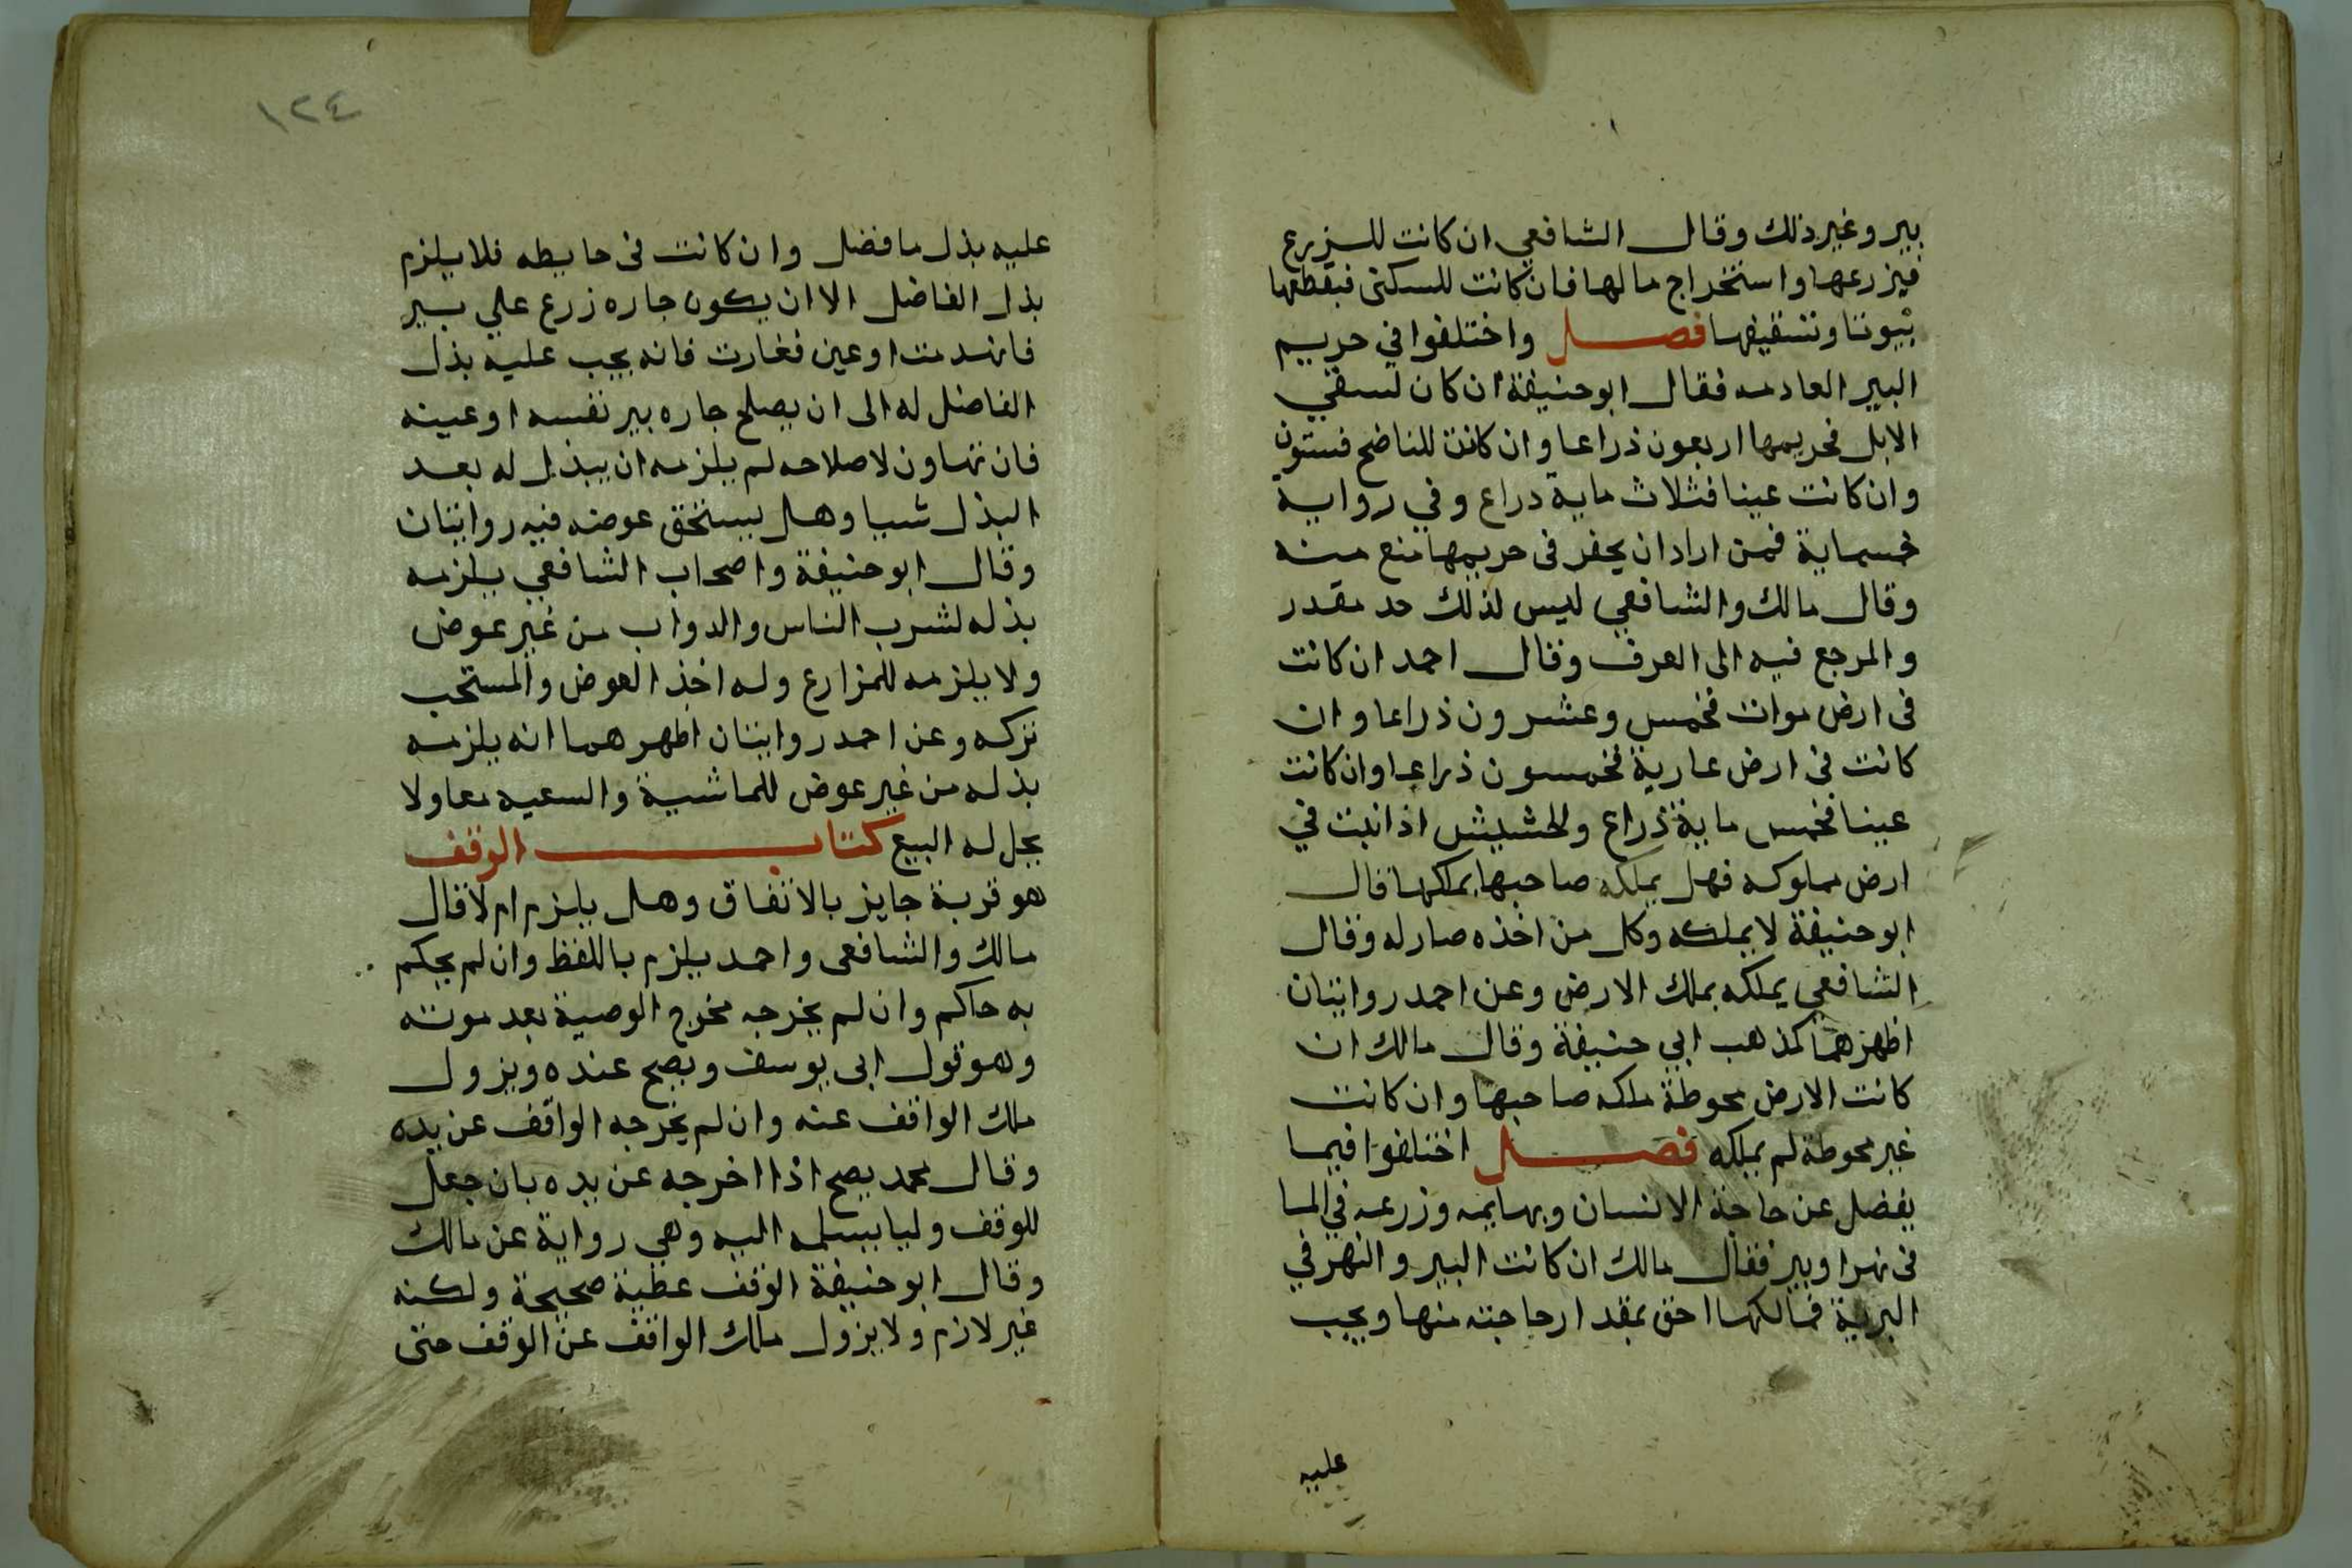 بير وغير ذلك وقال الشافعي ان كانت للزرع
فيزرعها واستخراج ما لها فان كانت للسكنى فبقطعها
بيوتا وتسقيفها فصل واختلفوا في حريم
البير العادمه فقال ابو حنيفة ان كان لسقي
الابل فحريمها اربعون ذراعا وان كانت للناضح فستون
وان كانت عينا فثلاث ماية دراع وفي رواية
خمسماية فمن اراد ان يحفر في حريمها منع منه
وقال مالك والشافعي ليس لذلك حد مقدر
والمرجع فيه الى العرف وقال احمد ان كانت
في ارض موات فخمس وعشرون ذراعا وان
كانت في ارض عارية فخمسون ذراعا وان كانت
عينا فخمس ماية ذراع والحشيش اذا نبت في
ارض مملوكه فهل يملكه صاحبها بملكها قال
ابو حنيفة لا يملكه وكل من اخذه صار له وقال
الشافعي يملكه بملك الارض وعن احمد روايتان
اظهرهما كمذهب ابي حنيفة وقال مالك ان
كانت الارض محوطة ملكه صاحبها وان كانت
غير محوطة لم يملكه فصل اختلفوا فيما
يفضل عن حاجة الانسان وبهايمه وزرعه في الما
في نهر او بير فقال مالك ان كانت البير والنهر في
البرية فمالكها احق بمقدار حاجته منها ويجب
عليه
١٢٤
عليه بذل ما فضل وان كانت في حايطه فلا يلزم
بذل الفاضل الا ان يكون جاره زرع علي بير
فانهدمت او عين فغارت فانه يجب عليه بذل
الفاضل له الى ان يصلح جاره بير نفسه او عينه
فان تهاون لاصلاحه لم يلزمه ان يبذل له بعد
البذل شيا وهل يستحق عوضه فيه روايتان
وقال ابو حنيفة واصحاب الشافعي يلزمه
بذله لشرب الناس والدواب من غير عوض
ولا يلزمه للمزارع وله اخذ العوض والمستحب
تركه وعن احمد روايتان اظهرهما انه يلزمه
بذله من غير عوض للماشية والسعيه معا ولا
يحل له البيع كتاب الوقف
هو قربة جايز بالاتفاق وهل يلزم ام لا قال
مالك والشافعي واحمد يلزم باللفظ وان لم يحكم
به حاكم وان لم يخرجه مخرج الوصية بعد موته
وهو قول ابي يوسف ويصح عنده ويزول
ملك الواقف عنه وان لم يخرجه الواقف عن يده
وقال محمد يصح اذا اخرجه عن يده بان جعل
للوقف وليا يسلمه اليه وهي رواية عن مالك
وقال ابو حنيفة الوقف عطية صحيحة ولكنه
غير لازم ولا يزول ملك الواقف عن الوقف حتى